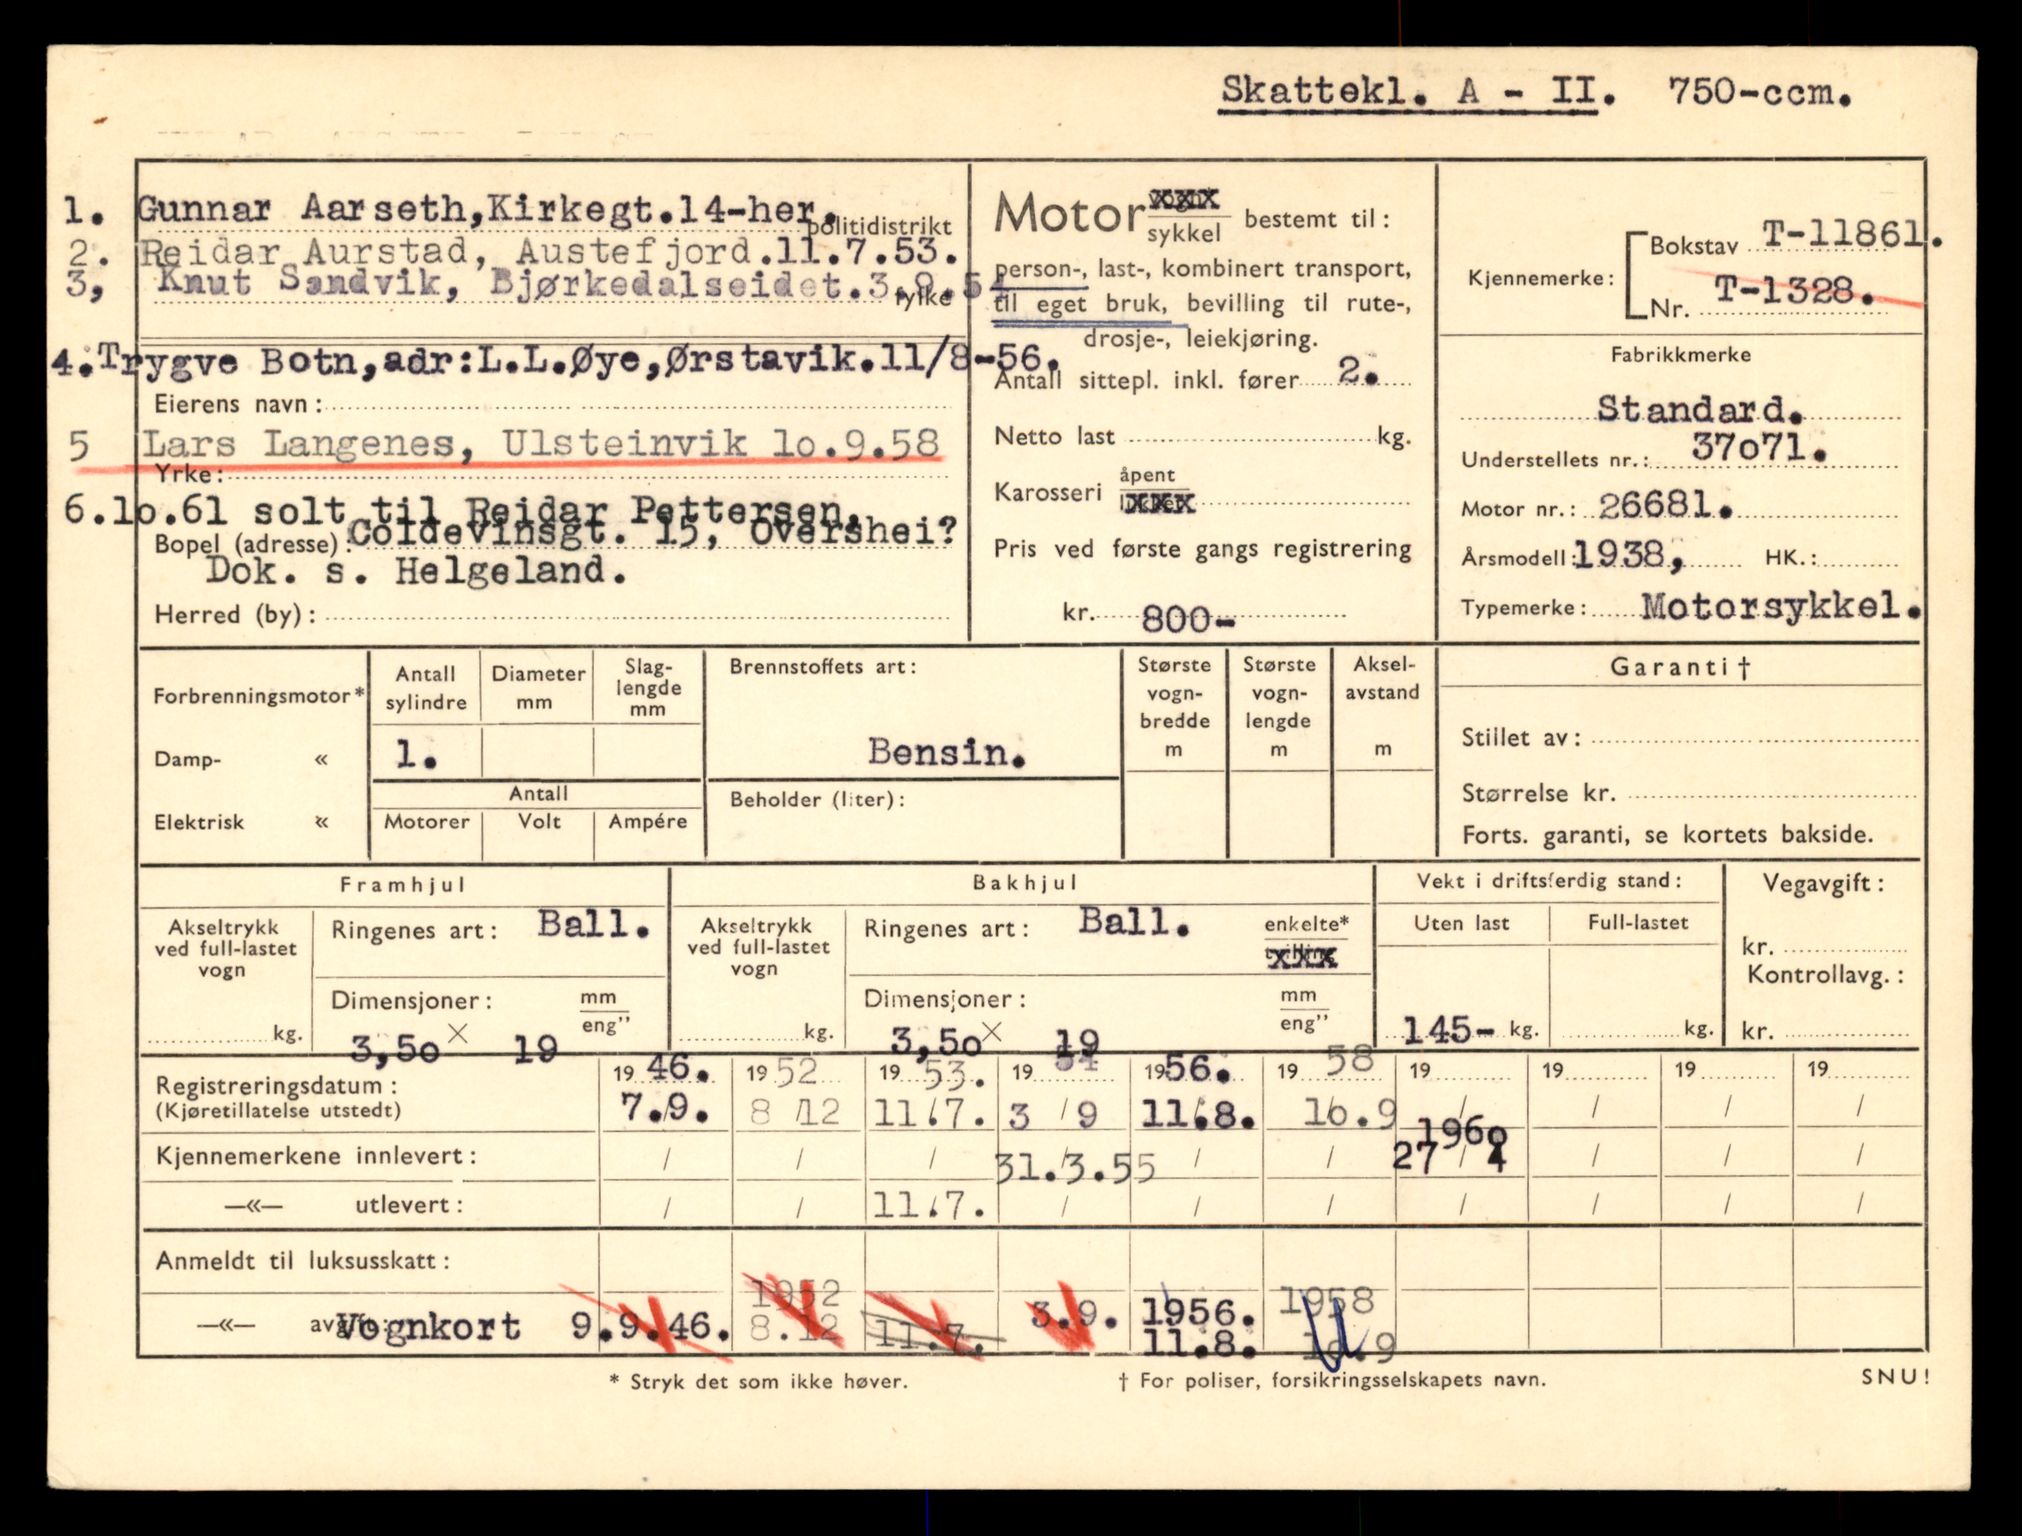 Skattekl. A - II. 750-ccm.
1. Gunnar Aarseth,Kirkegt.14-her.
politidistrikt
2. Reidar Aurstad, Austefjord.11.7.53.
3, Knut Sandvik, Bjørkedalseidet.3.9.54
fylke
4.Trygve Botn,adr:L.L.Øye,Ørstavik.11/8-56.
Eierens navn:
5 Lars Langenes, Ulsteinvik 1o.9.58
Yrke:
6.1o.61 solt til Reidar Pettersen,
Bopel (adresse): Coldevinsgt. 15, Overshei?
Dok. s. Helgeland.
Herred (by):
Motor vogn xxx
sykkel bestemt til:
person-, last-, kombinert transport,
til eget bruk, bevilling til rute-,
drosje-, leiekjøring.
Antall sittepl. inkl. fører 2.
Netto last kg.
Karosseri åpent
xxx
Pris ved første gangs registrering
kr. 800-
Kjennemerke: Bokstav T-11861.
Nr. T-1328.
Fabrikkmerke
Standard.
Understellets nr.: 37o71.
Motor nr.: 26681.
Årsmodell: 1938, HK.:
Typemerke: Motorsykkel.
Forbrenningsmotor*
Damp- «
Elektrisk «
Antall sylindre
Diameter mm
Slag-lengde mm
1.
Antall
Motorer Volt Ampére
Brennstoffets art:
Bensin.
Beholder (liter):
Største vogn-bredde m
Største vogn-lengde m
Aksel-avstand m
Garanti †
Stillet av:
Størrelse kr.
Forts. garanti, se kortets bakside.
Framhjul
Akseltrykk ved full-lastet vogn
kg.
Ringenes art: Ball.
Dimensjoner: mm
eng"
3,5o × 19
Bakhjul
Akseltrykk ved full-lastet vogn
kg.
Ringenes art: Ball. enkelte*
xxx
Dimensjoner: mm
eng"
3,5o × 19
Vekt i driftsferdig stand:
Uten last Full-lastet
145- kg. kg.
Vegavgift:
kr.
Kontrollavg.:
kr.
Registreringsdatum: 19 46. 19 52 19 53. 19 54 19 56. 19 58 19 19 19 19
(Kjøretillatelse utstedt) 7./9. 8/12 11./7. 3 / 9 11./8. 1o.9 / / / /
196o
Kjennemerkene innlevert: / / / 31.3.55 / / 27 / 4 / / /
—«— utlevert: / / 11./7. / / / / / / /
Anmeldt til luksusskatt:
1952 1958
—«— avgift: Vognkort 9.9.46. 8.12 11.7. 3.9. 1956. 1o.9
11.8.
* Stryk det som ikke høver.
† For poliser, forsikringsselskapets navn.
SNU!